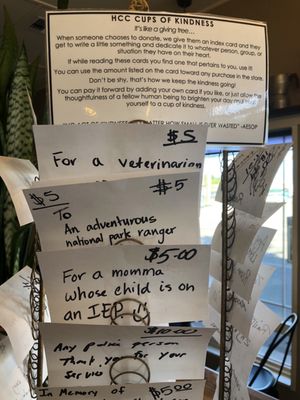 HCC CUPS OF KINDNESS
It's like a giving tree...
When someone chooses to donate, we give them an index card and they
get to write a little something and dedicate it to whatever person, group, or
situation they have on their heart.
If while reading these cards you find one that pertains to you, use it!
You can use the amount listed on the card toward any purchase in the store.
Don't be shy, that's how we keep the kindness going!
You can pay it forward by adding your own card if you like, or just allow the
thoughtfulness of a fellow human being to brighten your day and treat
yourself to a cup of kindness.
MATTER HOW SMALL IS EVER WASTED" -AESOP
$5
For a veterinarian
$5
$5
To
An adventurous
national park ranger
$5.00
For a momma
whose child is on
an IEP
$10.00
Any police person
Thank you for your
Service
In Memory of $5.00